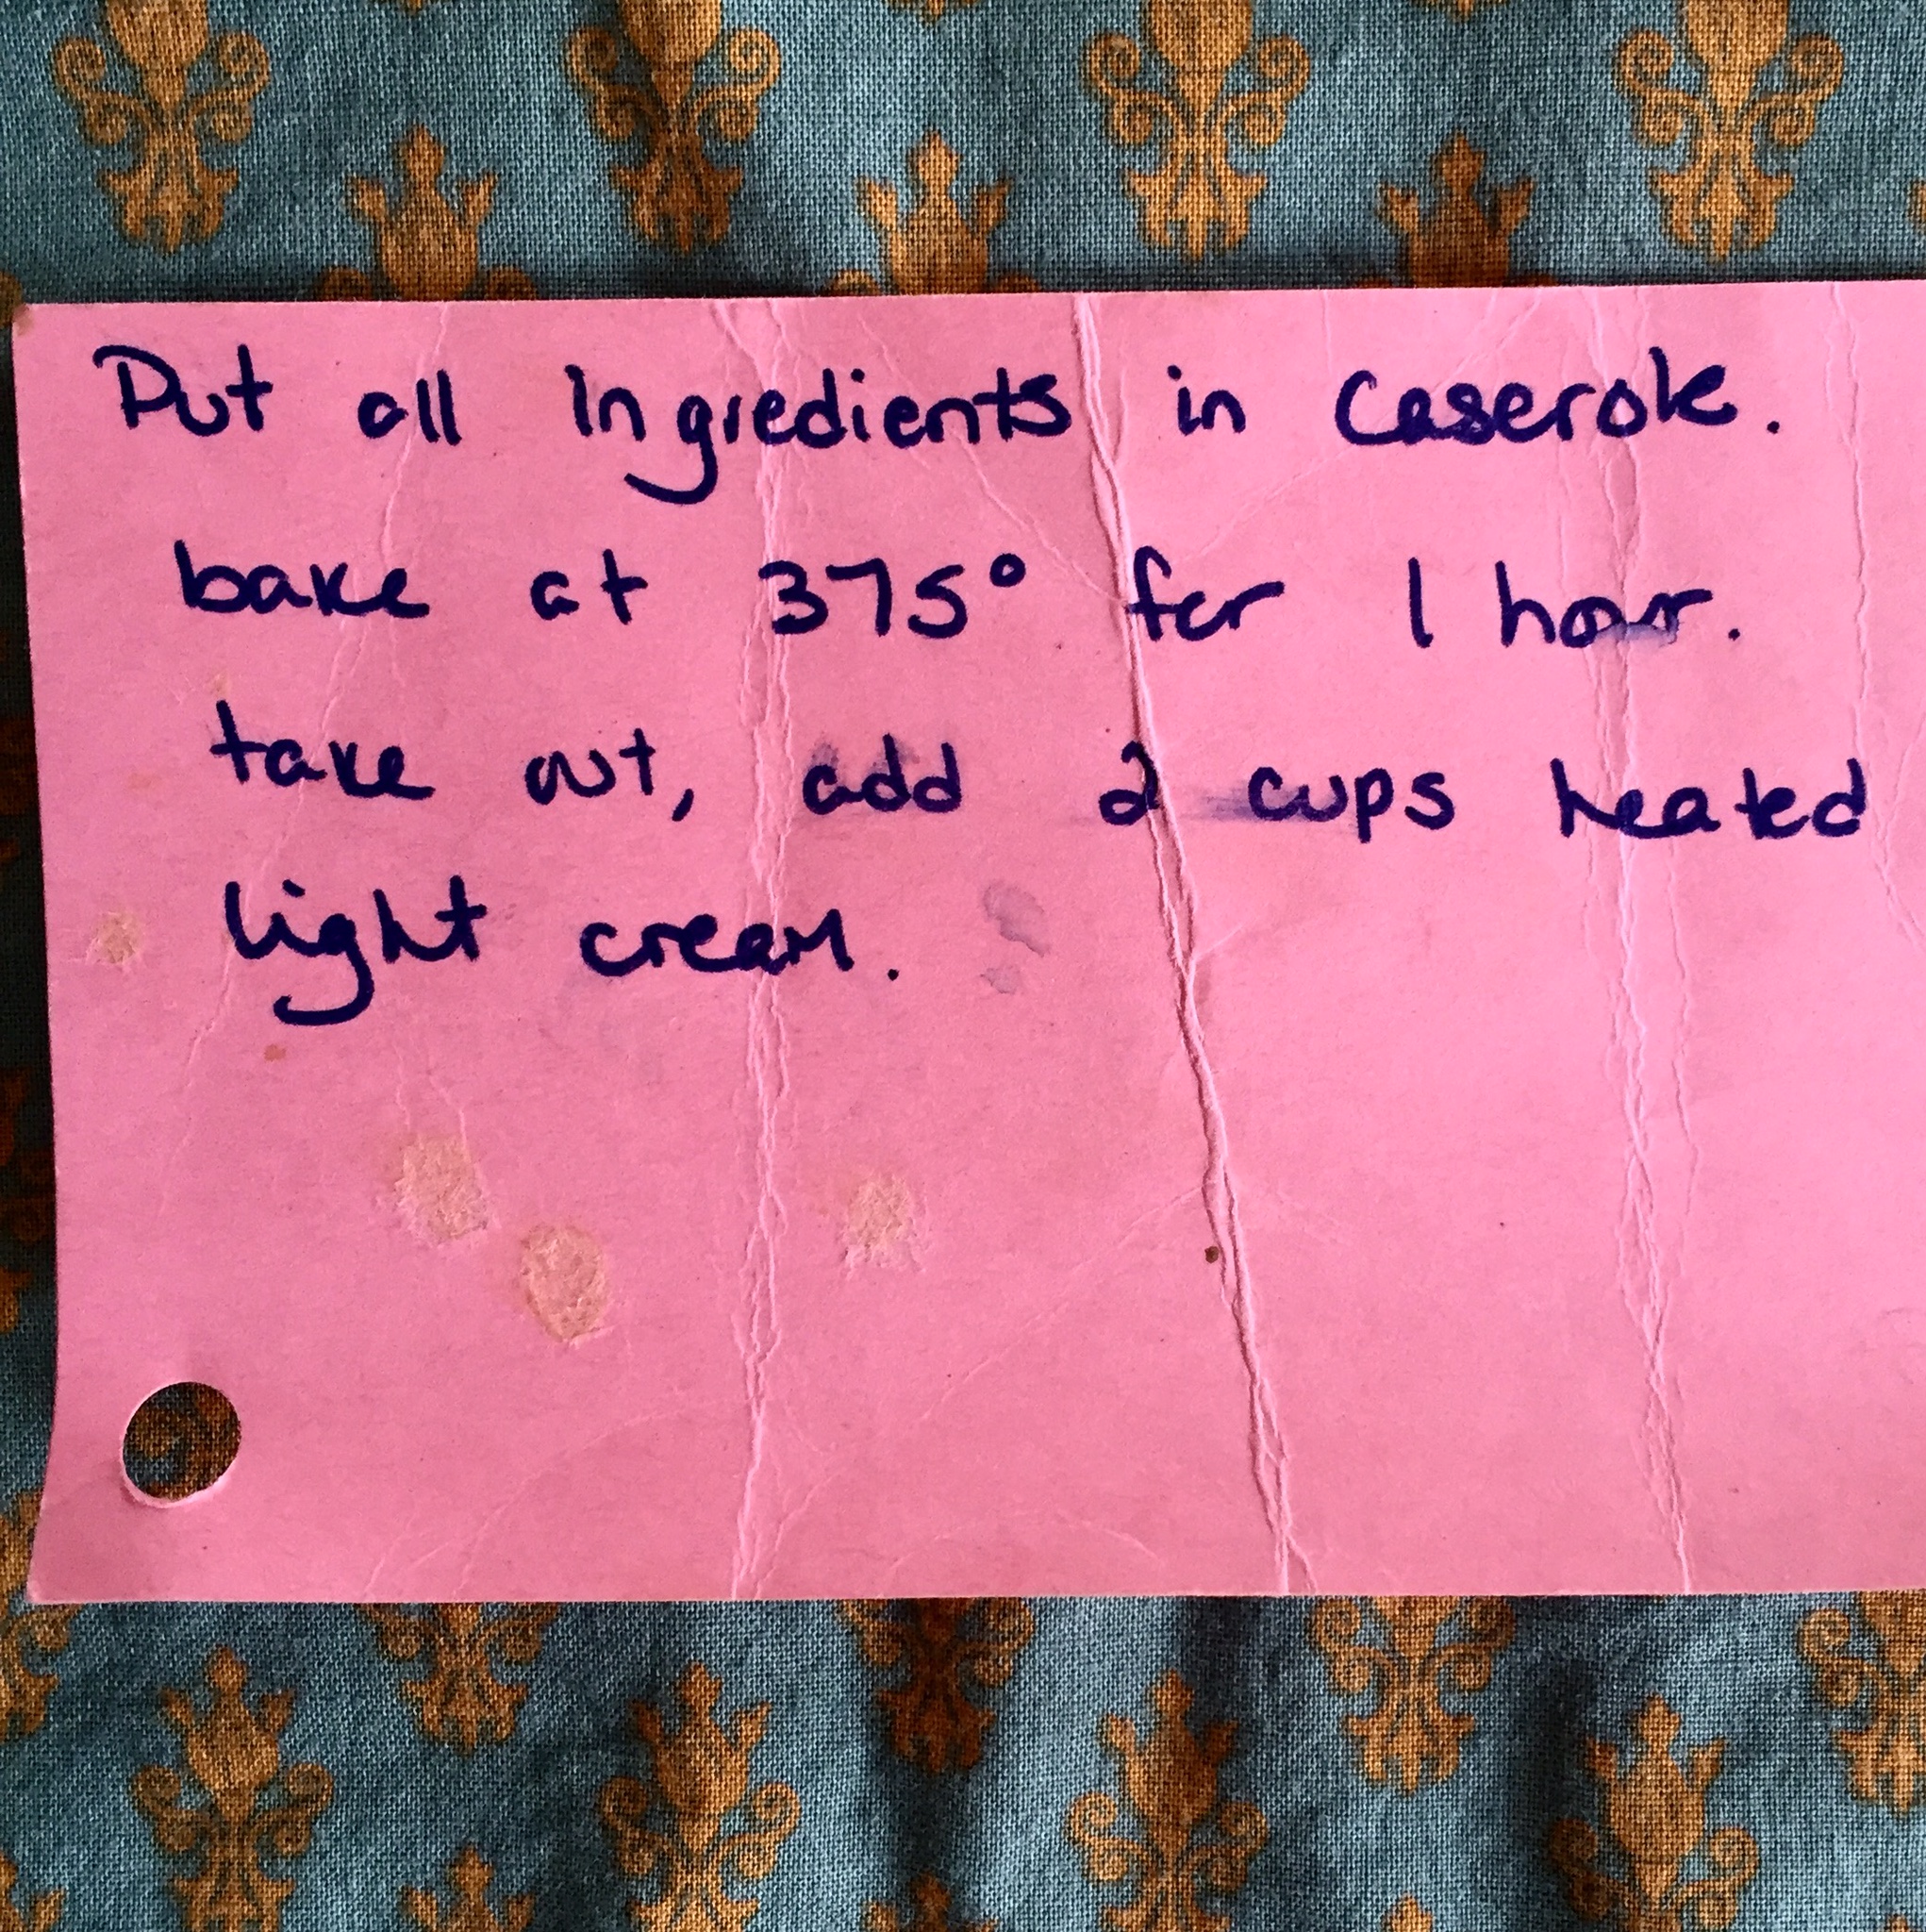 Put all Ingredients in Caserole.
bake at 375° for 1 hour.
take out, add 2 cups heated
light cream.